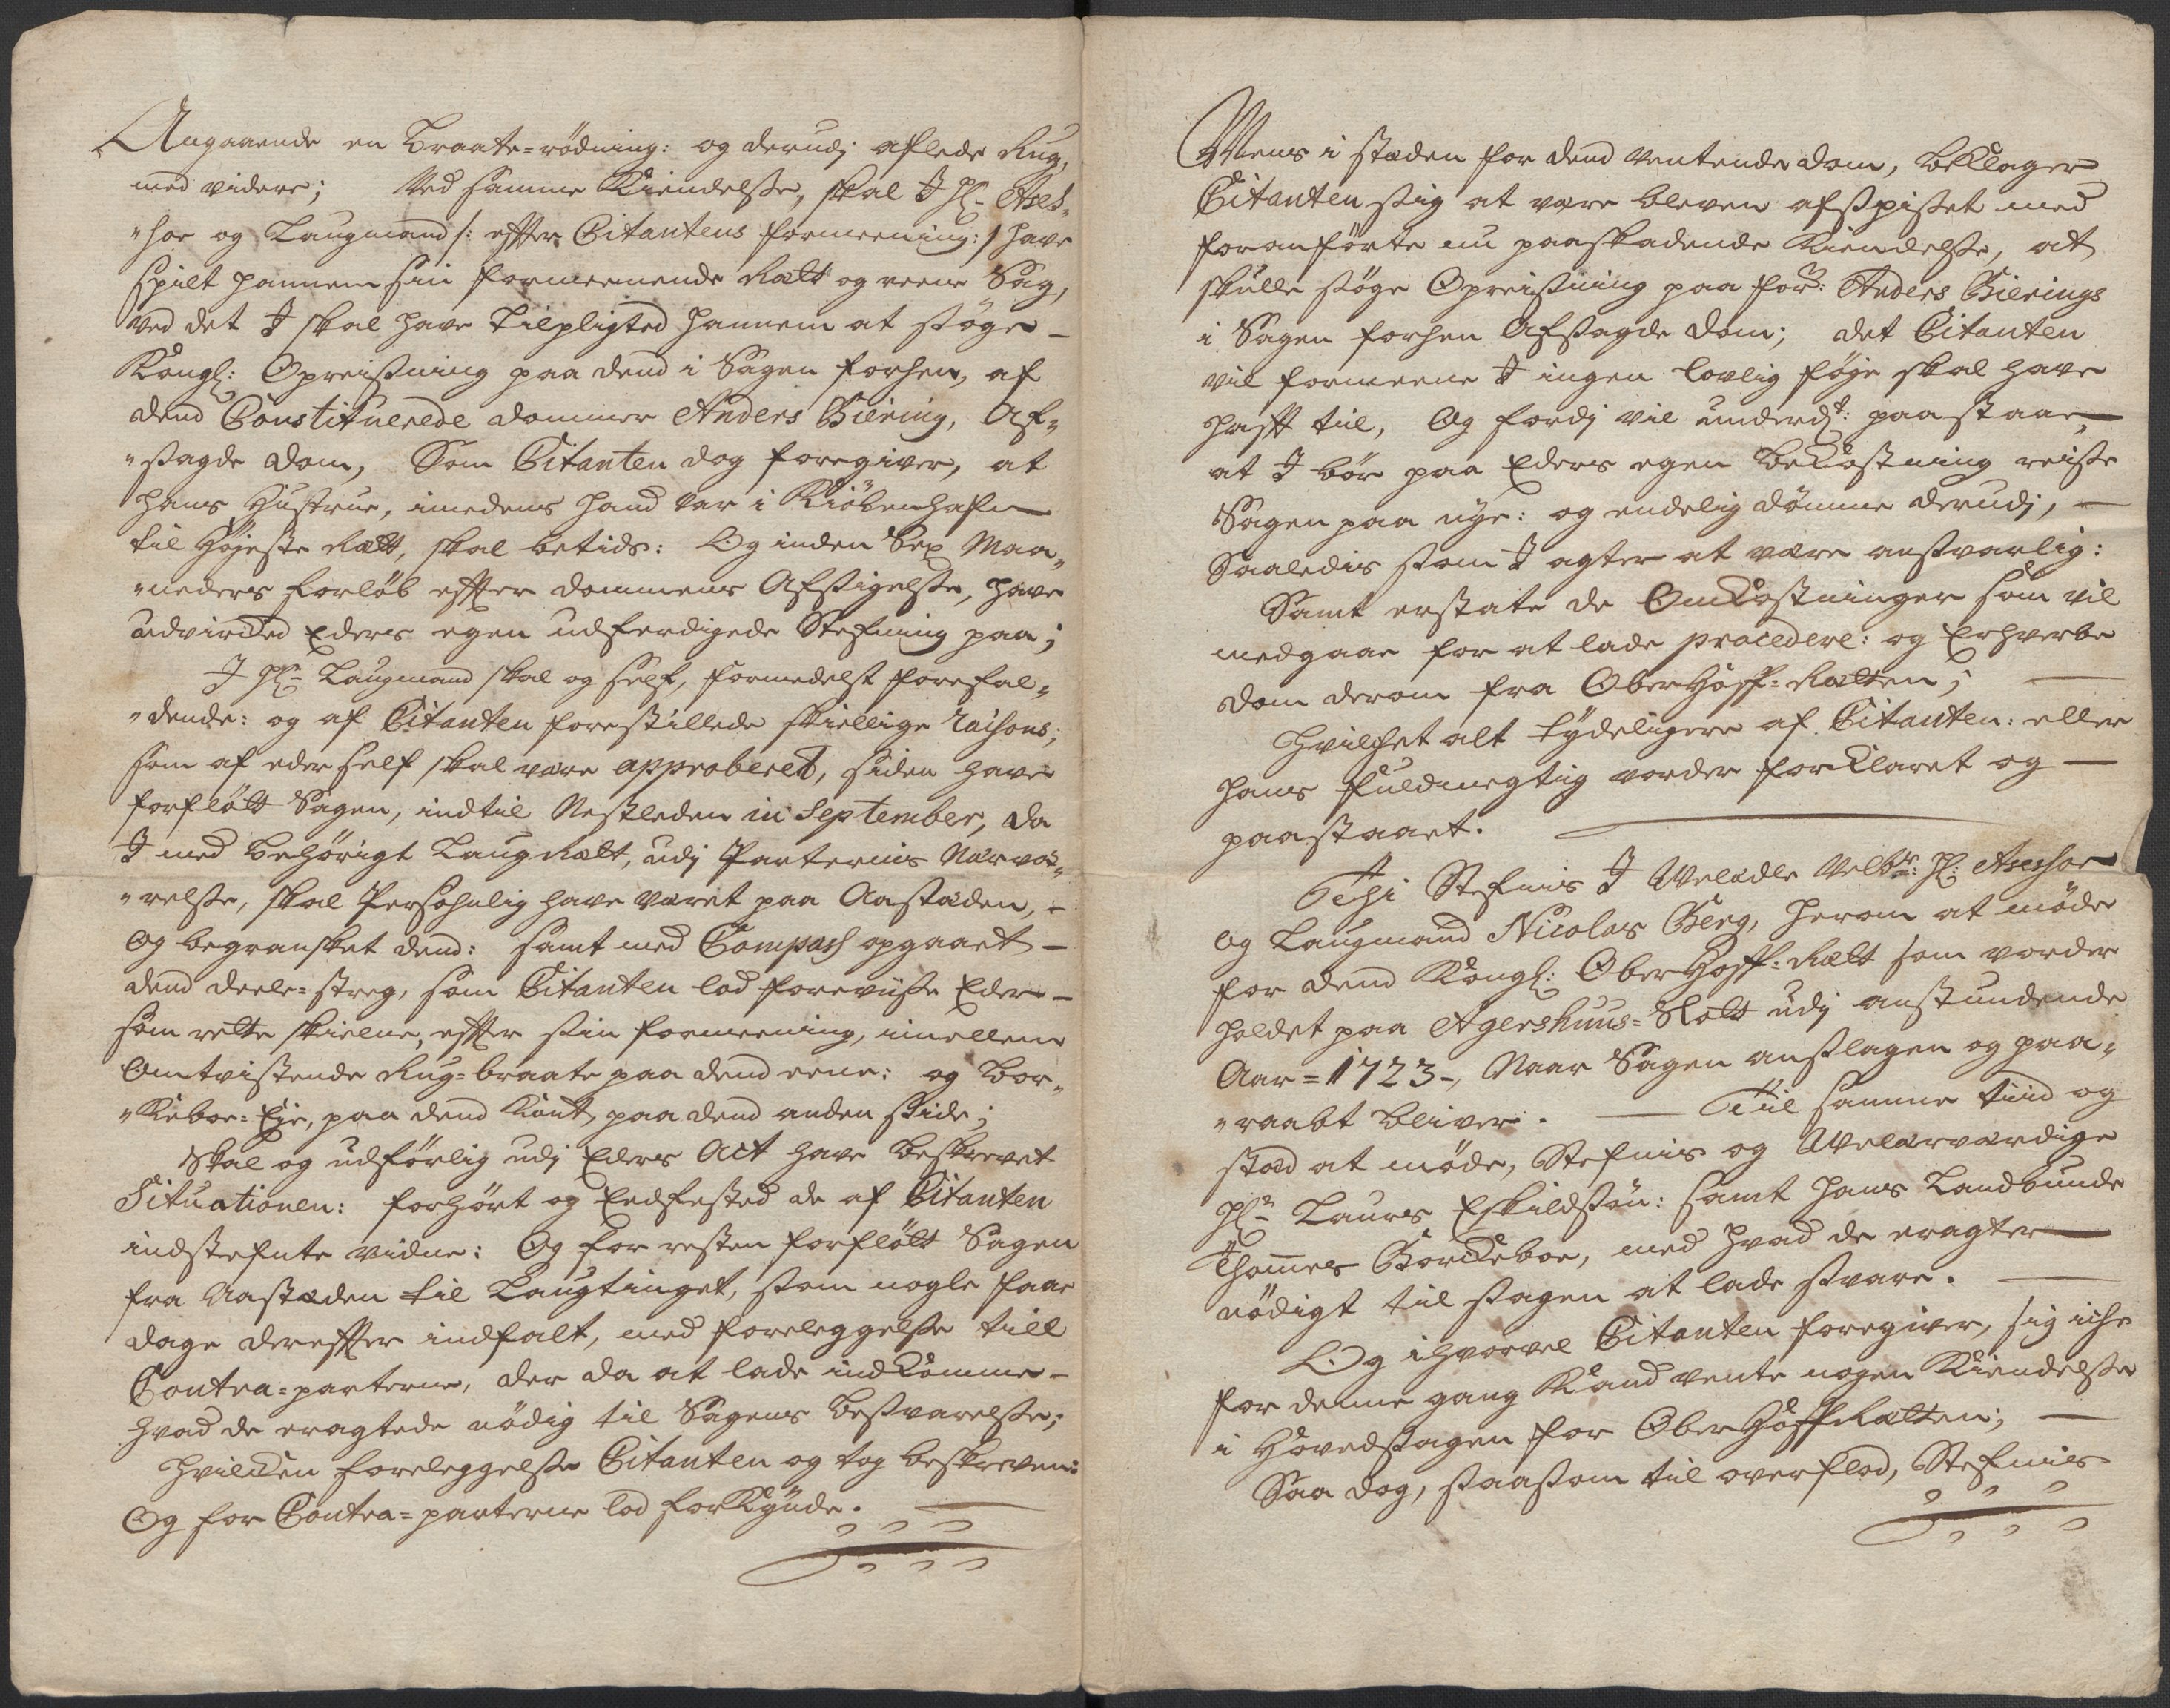 Angaaende en braate=rödning: og derudj aflede Rug,
med videre; Ved samme Kiendelsse, skal I Hr. Asses-
"sor og Laugmand /: effter Citantens formeening :/ have
spilt hannem sin formeenende Rætt og reene Sag,
ved det I skal have tilpligted hannem at søge
Kongl: Opreissning paa dend i Sagen forhen, af
dend Constituerede dommer Anders Biering, Af-
"sagde dom, Som Citanten dog foregiver, at
hans Hustrue, imedens hand var i Kiöbenhafn
til Höjeste Rætt, skal betids: Og inden Sex Maa-
"neders forlöb effter dommens Afsigelsse, have
udvircked Eders egen udferdigede Stefning paa;
I Hr. Laugmand skal og self, formedelst forefal-
"dende: og af Citanten forestillede skiellige raisons;
som af eder self skal være approberet, siden have
forflött Sagen, indtil Nestleden in September, da
I med behörigt Laug Rætt, udj Parternis Nærvæ-
"relsse, skal Persohnlig have været paa Aastæden,
Og begransket dend: samt med Compass opgaaet
dend deele=streg, som Citanten lod foreviisse Eder
som rette skielne, effter sin formeening, imellem
Omtvistende Rug=braate paa dend eene: og Bor-
"Keboe=Eje, paa dend Kont, paa dend anden Side;
Skal og udförlig udj Eders Act have beskrevet
Situationen: forhört og Eedfested de af Citanten
indstefnte vidne: Og for resten forflött Sagen
fra Aastæden til Laugtinget, som nogle faae
dage dereffter indfalt, med foreleggelsse till
Contra=parterne, der da at lade indkomme
hvad de eragtede nödig til Sagens besvarelsse;
Hvilcken foreleggelsse Citanten og tog beskreven:
Og for Contra=parterne lod forkynde.
Mens i stæden for dend ventende dom, beklager
Citanten sig at være bleven afspisset med
foranförte nu paaskadende Kiendelsse, at
skulle söge Opreissning paa forn: Anders Bierings
i Sagen forhen Afsagde dom; det Citanten
vil formeene I ingen lovlig föje skal have
hafft til, Og fordj vil underdt: paastaae,
at I bör paa Eders egen bekostning reisse
Sagen paa nye: og endelig dömme derudj,
Saaledis som I agter at være ansvarlig:
Samt erstate de Omkostninger som vil
medgaae for at lade procedere: og Erhverbe
dom derom fra OberHoff=Rætten;
Hvilchet alt tydeligere af Citanten: eller
hans fuldmegtig vorder forklaret og
paastaaet.
Thi Stefnis I Welædle Velbr: Hr: Assessor
og Laugmand Nicolas Berg, herom at möde
for dend Kongl: OberHoff=Rætt som vorder
holdet paa Agershuus=Slott udj anstundende
Aar=1723-, Naar Sagen anslagen og paa-
"raabt bliver. Til samme tiid og
stæd at möde, Stefnis og Welærværdige
Hr. Laurs Eskildsön: samt hans Landbunde
Thommes Borckeboe, med hvad de eragter
nödigt til sagen at lade svare.
Og ihvorvel Citanten foregiver, sig iche
for denne gang Kand vente nogen Kiendelsse
i Hovedsagen for OberHoffRætten;
Saa dog, saasom til overflod, Stefnis